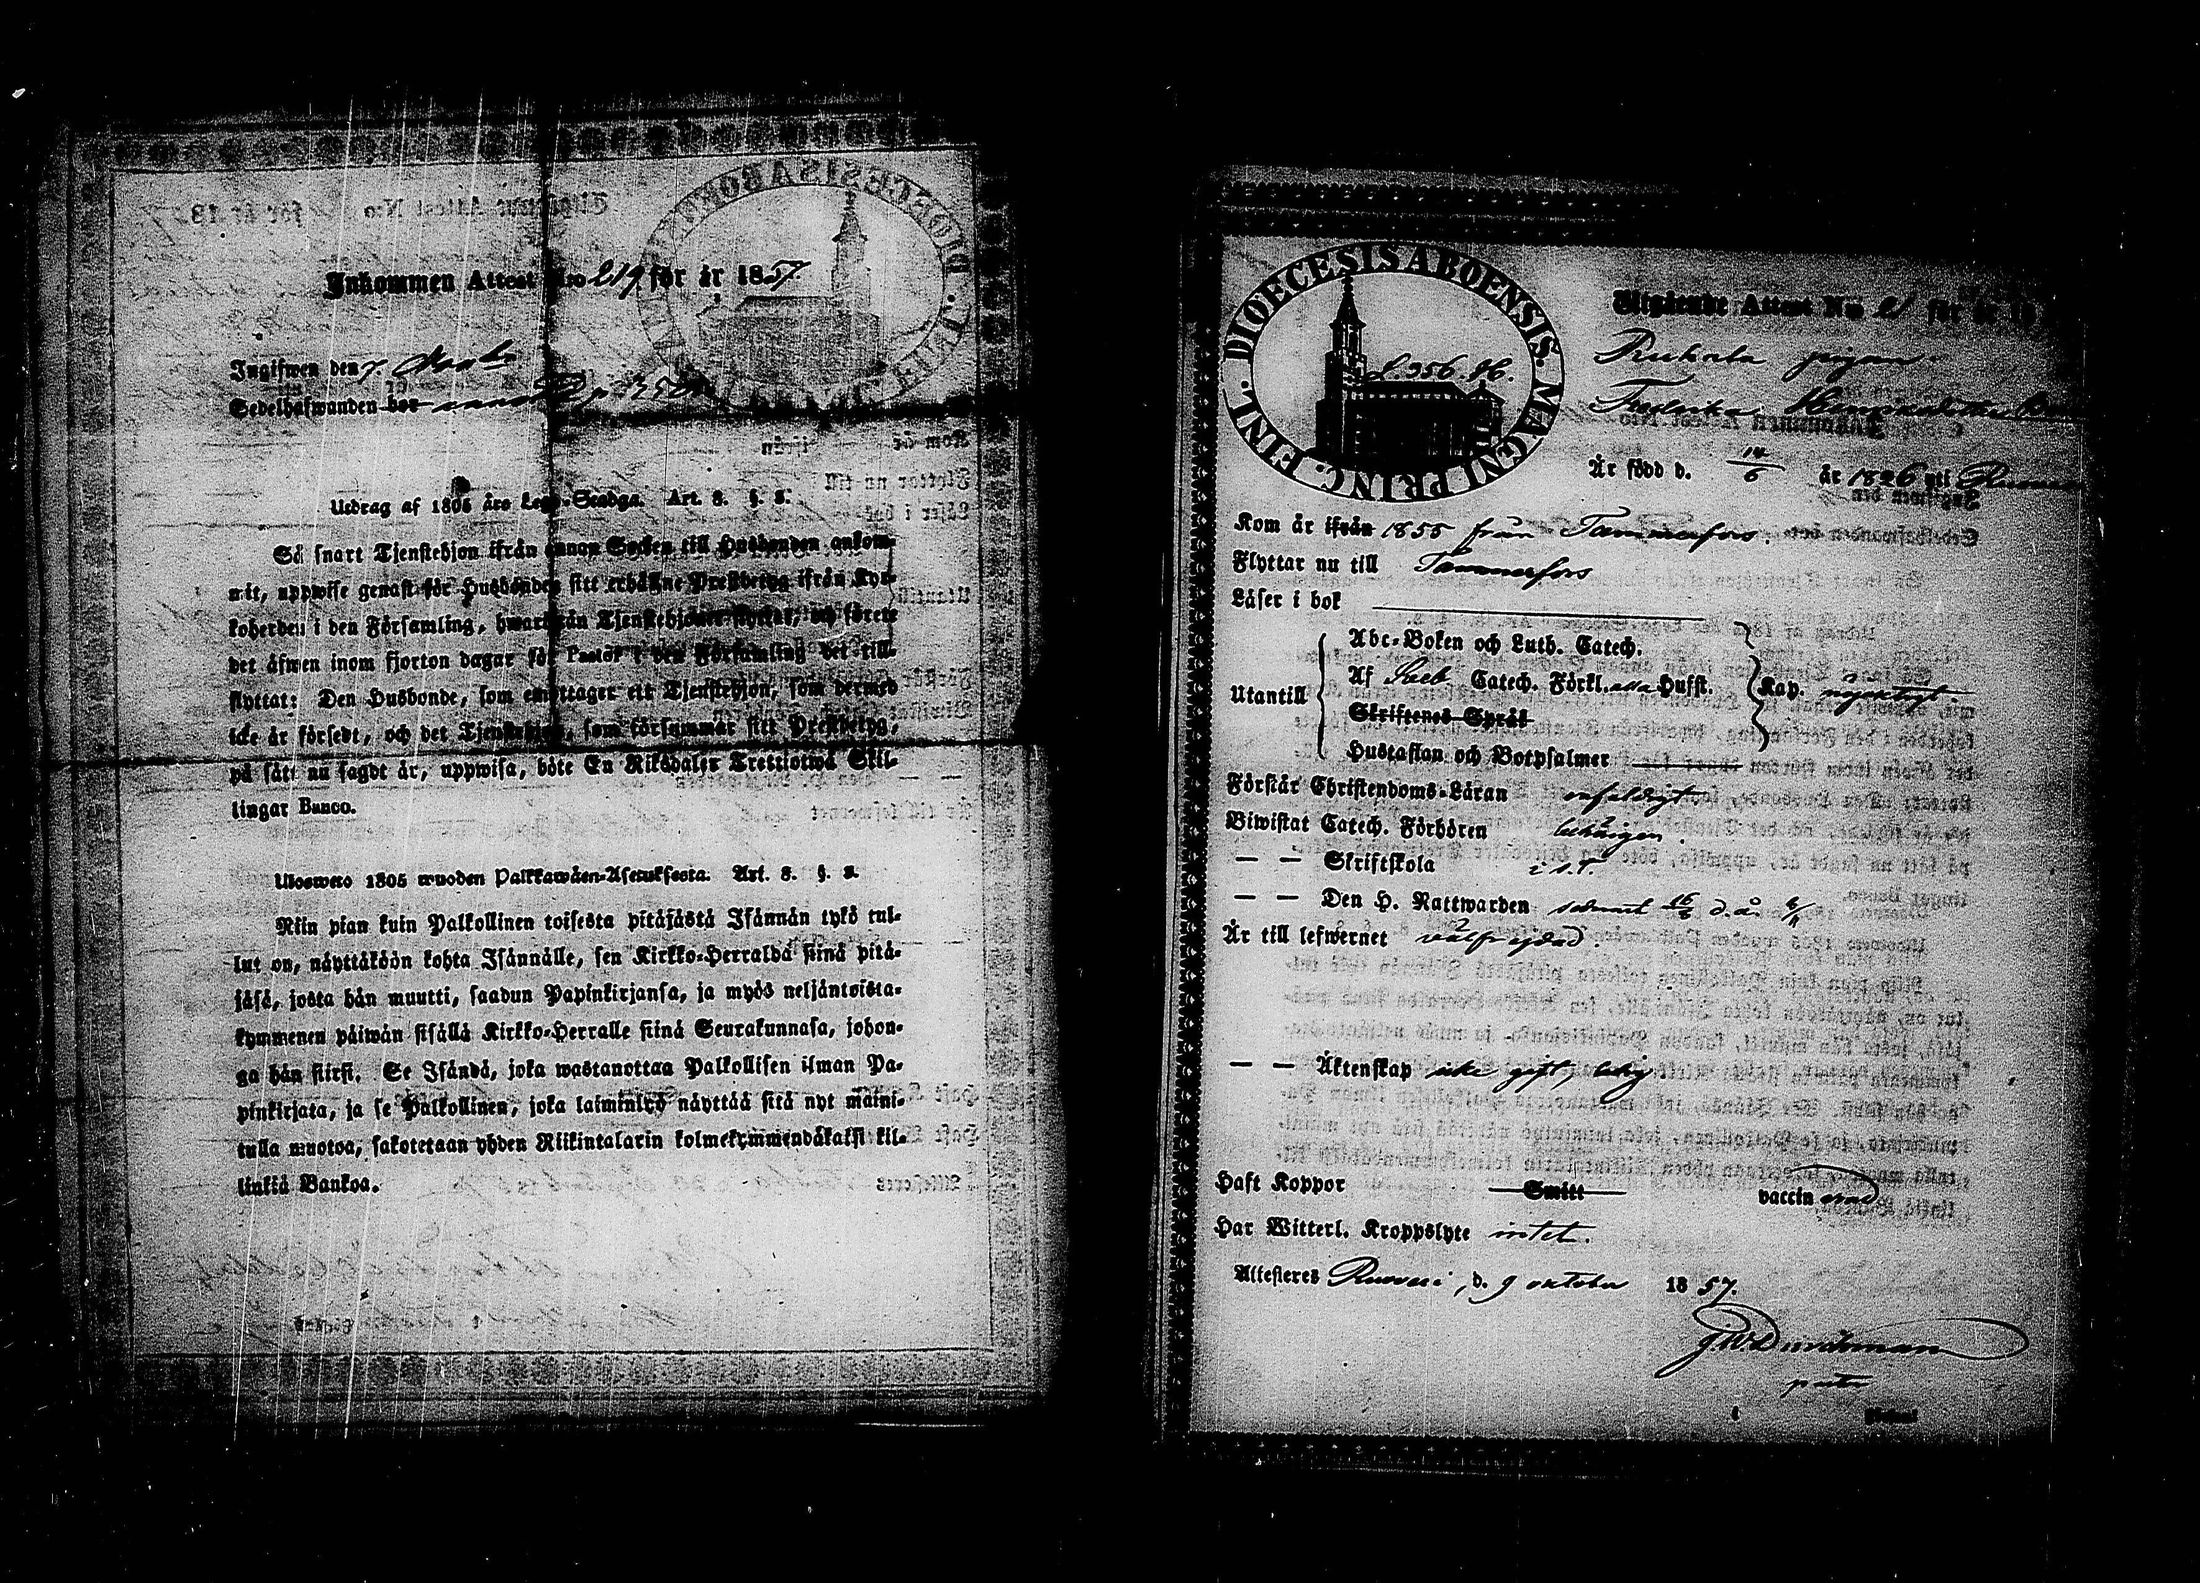 Inkommen Attest Nro 219 för år 1857
Ingifwen den 7.
Sedelhafwanden bor
Utdrag af 1805 års Lego-Stadga. Art. 8. §. 8.
Så snart Tjenstehjon ifrån annan Socken till Husbonden ankom-
mit, uppwise genast för Husbonden sitt erhållne Prestbetyg ifrån Kyr-
koherden i den Församling, hwarifrån Tjenstehjonet flyttat, och förete
det äfwen inom fjorton dagar för Pastor i den Församling det till-
flyttat: Den Husbonde, som emottager ett Tjenstehjon, som dermed
icke är försedt, och det Tjenstehjon, som försummar sitt Prestbetyg,
på sätt nu sagdt är, uppwisa, böte En Riksdaler Trettiotwå Skil-
lingar Banco.
Ulosweto 1805 wuoden Palkkawäen-Asetuksesta. Art. 8. §. 8.
Niin pian kuin Palkollinen toisesta pitäjästä Isännän tykö tul-
lut on, näyttäköön kohta Isännälle, sen Kirkko-Herralda siinä pitä-
jäsä, josta hän muutti, saadun Papinkirjansa, ja myös neljäntoista-
kymmenen päiwän sisällä Kirkko-Herralle siinä Seurakunnasa, johon-
ga hän siirsi. Se Isändä, joka wastanottaa Palkollisen ilman Pa-
pinkirjata, ja se Palkollinen, joka laiminlyö näyttää sitä nyt maini-
tulla muotoa, sakotetaan yhden Riikintalarin kolmekymmendäkaksi kil-
linkiä Bankoa.
DIOECESIS ABOENSIS. MAGNI PRINC. FINL.
p. 356. 86.
Utgående Attest No 21 för år 18
Ruskola pigan
Fredrika
Är född d. 14/6 år 1826 uti
Kom år ifrån 1855 från Tammerfors.
Flyttar nu till Tammerfors
Läser i bok
Utantill
Abc-Boken och Luth. Catech.
Af Sveb Catech. Förkl. Husst.
Skriftenes Språk
Hustaflan och Botpsalmer
Kap. nöjaktigt
Förstår Christendoms-Läran enfaldigt
Biwistat Catech. Förhören behörigen
— — Skriftskola
— — Den H. Nattwarden senast
Är till lefwernet välfrejdad.
— — Äktenskap icke gift, ledig
Haft Koppor Smitt vaccinerad
Har Witterl. Kroppslyte intet.
Attesteres Rusko, d. 9 oktober 1857.